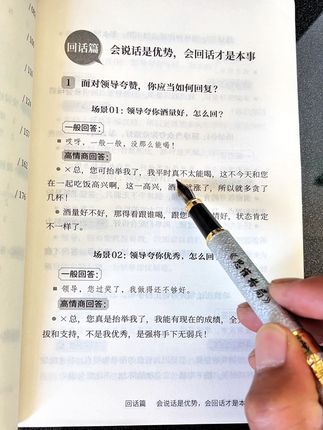 回话篇
会说话是优势，会回话才是本事
1 面对领导夸赞，你应当如何回复？
场景01：领导夸你酒量好，怎么回？
一般回答：
哎呀，一般一般，没那么能喝！
高情商回答：
×总，您可抬举我了，我平时真不太能喝，这不今天和您
在一起吃饭高兴啊，这一高兴，酒 涨了，所以就多贪了
几杯！
酒量好不好，那得看跟谁喝，跟您 情好，状态肯定
不一样了。
场景02：领导夸你优秀，怎么回
一般回答：
领导，您过奖了，我做得还不够好。
高情商回答：
×总，您真是抬举我了，我能有现在的成绩，全
拔和支持，不是我优秀，是强将手下无弱兵！
回话篇 会说话是优势，会回话才是本
/16
/17
/17